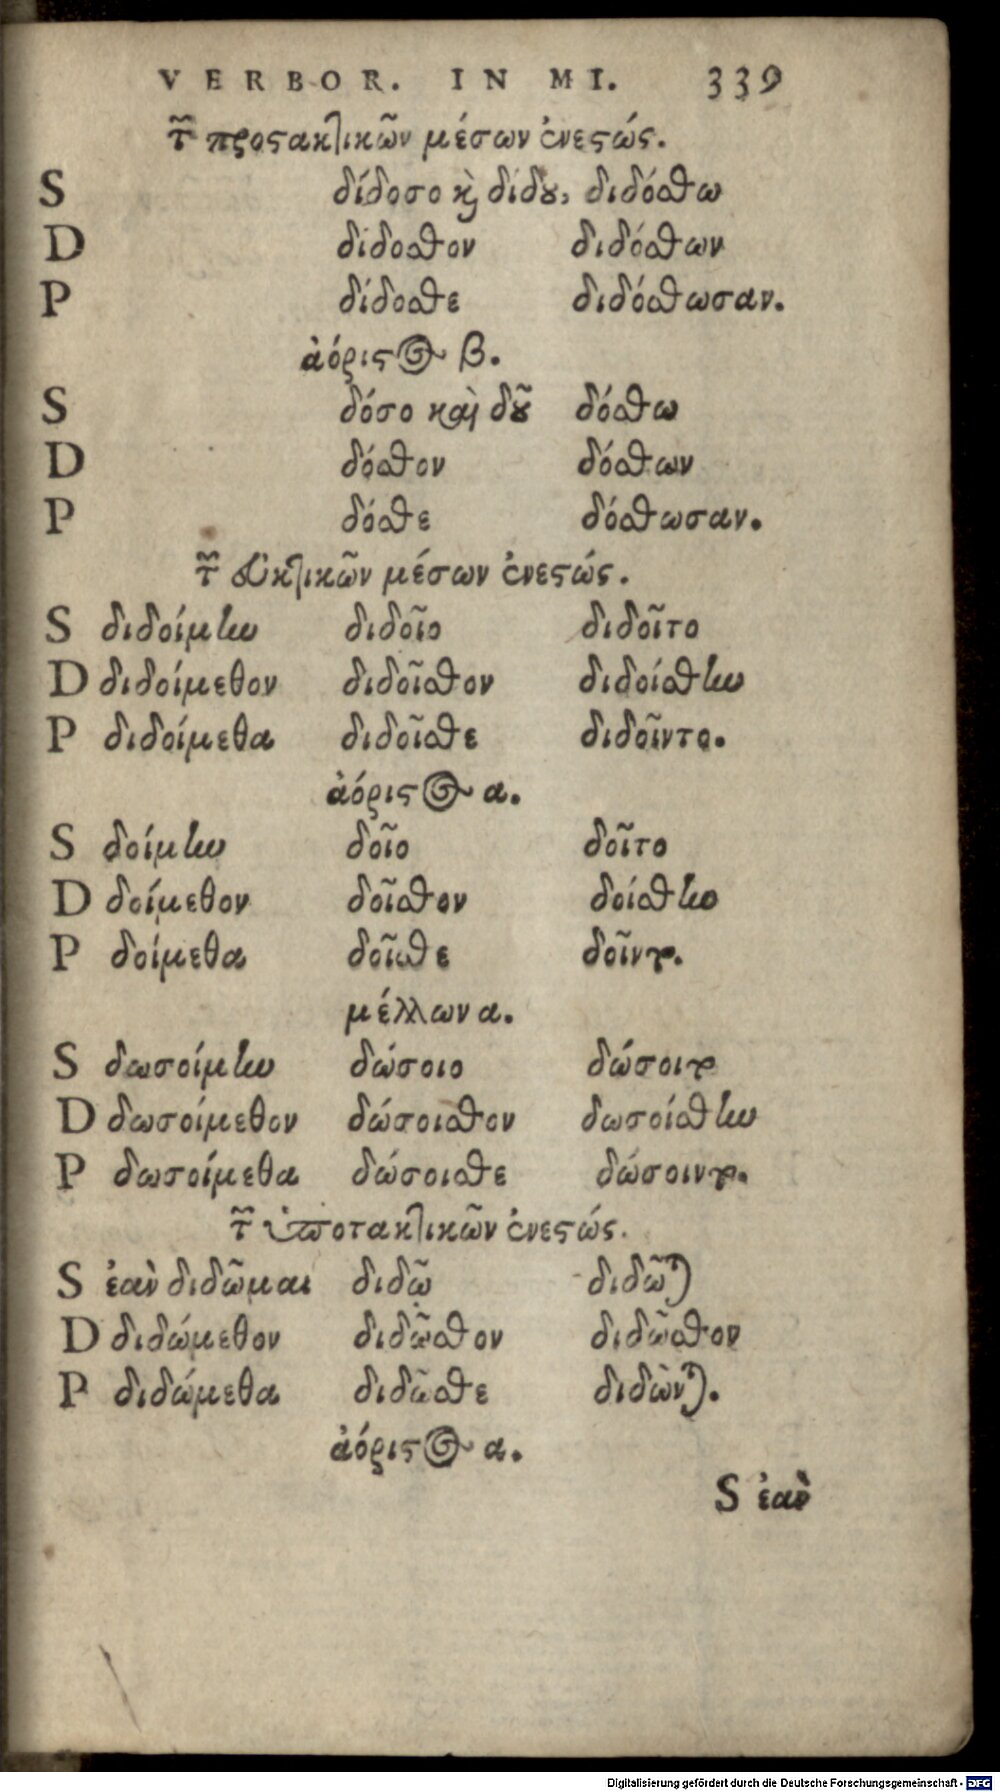 VERBOR. IN MI. 339
τῶν προςακτικῶν μέσων ἐνεϛώς.
S δίδοσο καὶ δίδου, διδόσθω
D δίδοσθον διδόσθων
P δίδοσθε διδόσθωσαν.
ἀόριϛος β.
S δόσο καὶ δοῦ δόσθω
D δόσθον δόσθων
P δόσθε δόσθωσαν.
τῶν εὐκτικῶν μέσων ἐνεϛώς.
S διδοίμην διδοῖο διδοῖτο
D διδοίμεθον διδοῖσθον διδοίσθην
P διδοίμεθα διδοῖσθε διδοῖντο.
ἀόριϛος α.
S δοίμην δοῖο δοῖτο
D δοίμεθον δοῖσθον δοίσθην
P δοίμεθα δοῖσθε δοῖντο.
μέλλων α.
S δωσοίμην δώσοιο δώσοιτο
D δωσοίμεθον δώσοισθον δωσοίσθην
P δωσοίμεθα δώσοισθε δώσοιντο.
τῶν ὑποτακτικῶν ἐνεϛώς.
S ἐὰν διδῶμαι διδῷ διδῶται
D διδώμεθον διδῶσθον διδῶσθον
P διδώμεθα διδῶσθε διδὼνται.
ἀόριϛος α.
S ἐὰν
Digitalisierung gefördert durch die Deutsche Forschungsgemeinschaft - DFG